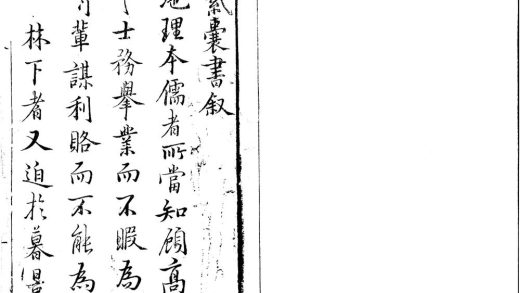 囊書叙
地理本儒者所當知顧高
士務舉業而不暇為
輩謀利賂而不能為
林下者又迫於暮景